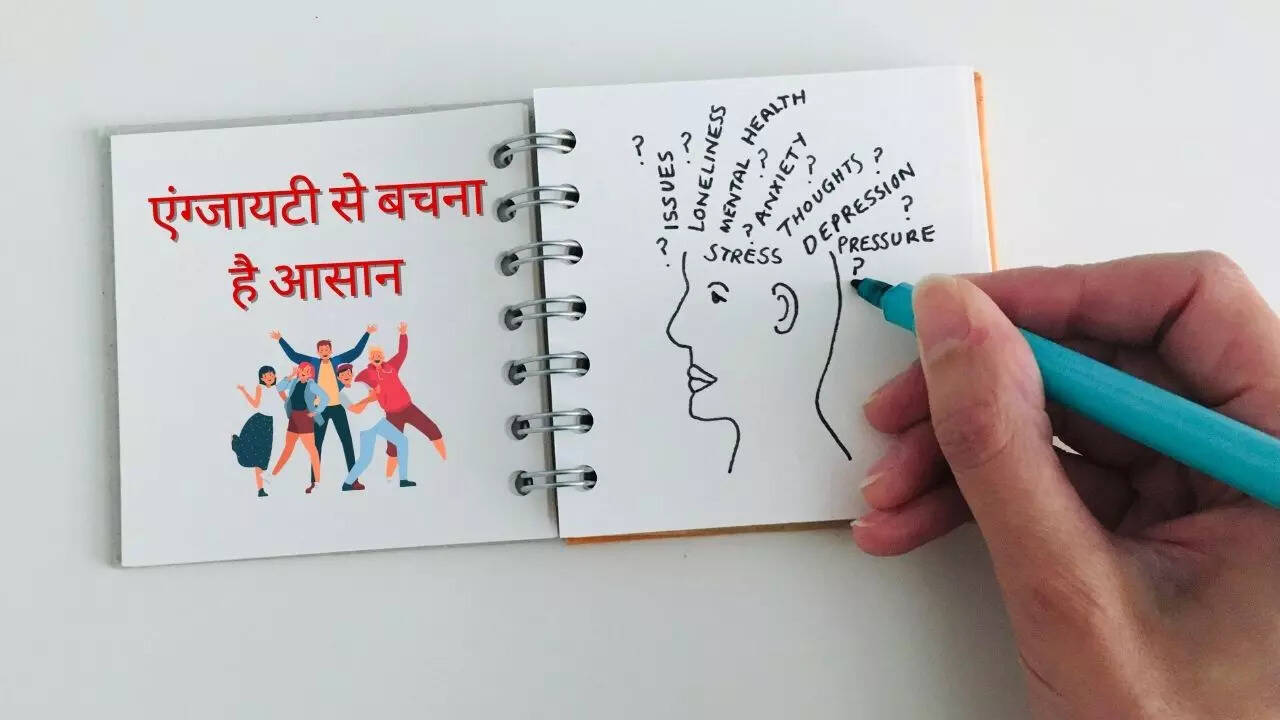 एंग्जायटी से बचना
है आसान
?
ISSUES
?
LONELINESS
MENTAL HEALTH
?
ANXIETY
?
?
THOUGHTS
?
DEPRESSION
?
?
STRESS
PRESSURE
?